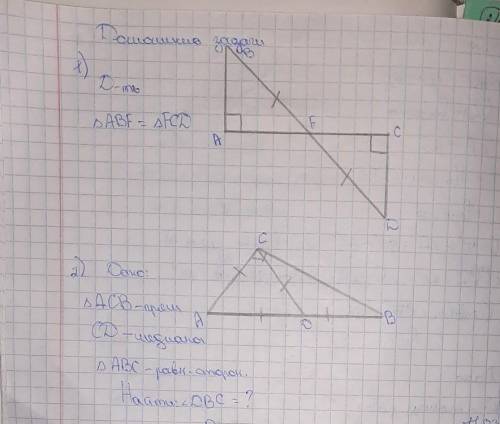 Домашние задачи
1)
D-ть
△ABF = △FCD
B
A
F
C
D
2) Дано:
△ACB-прям
CD-медиана
△ABC-равн. сторон.
Найти: ∠DBC = ?
C
A
O
B